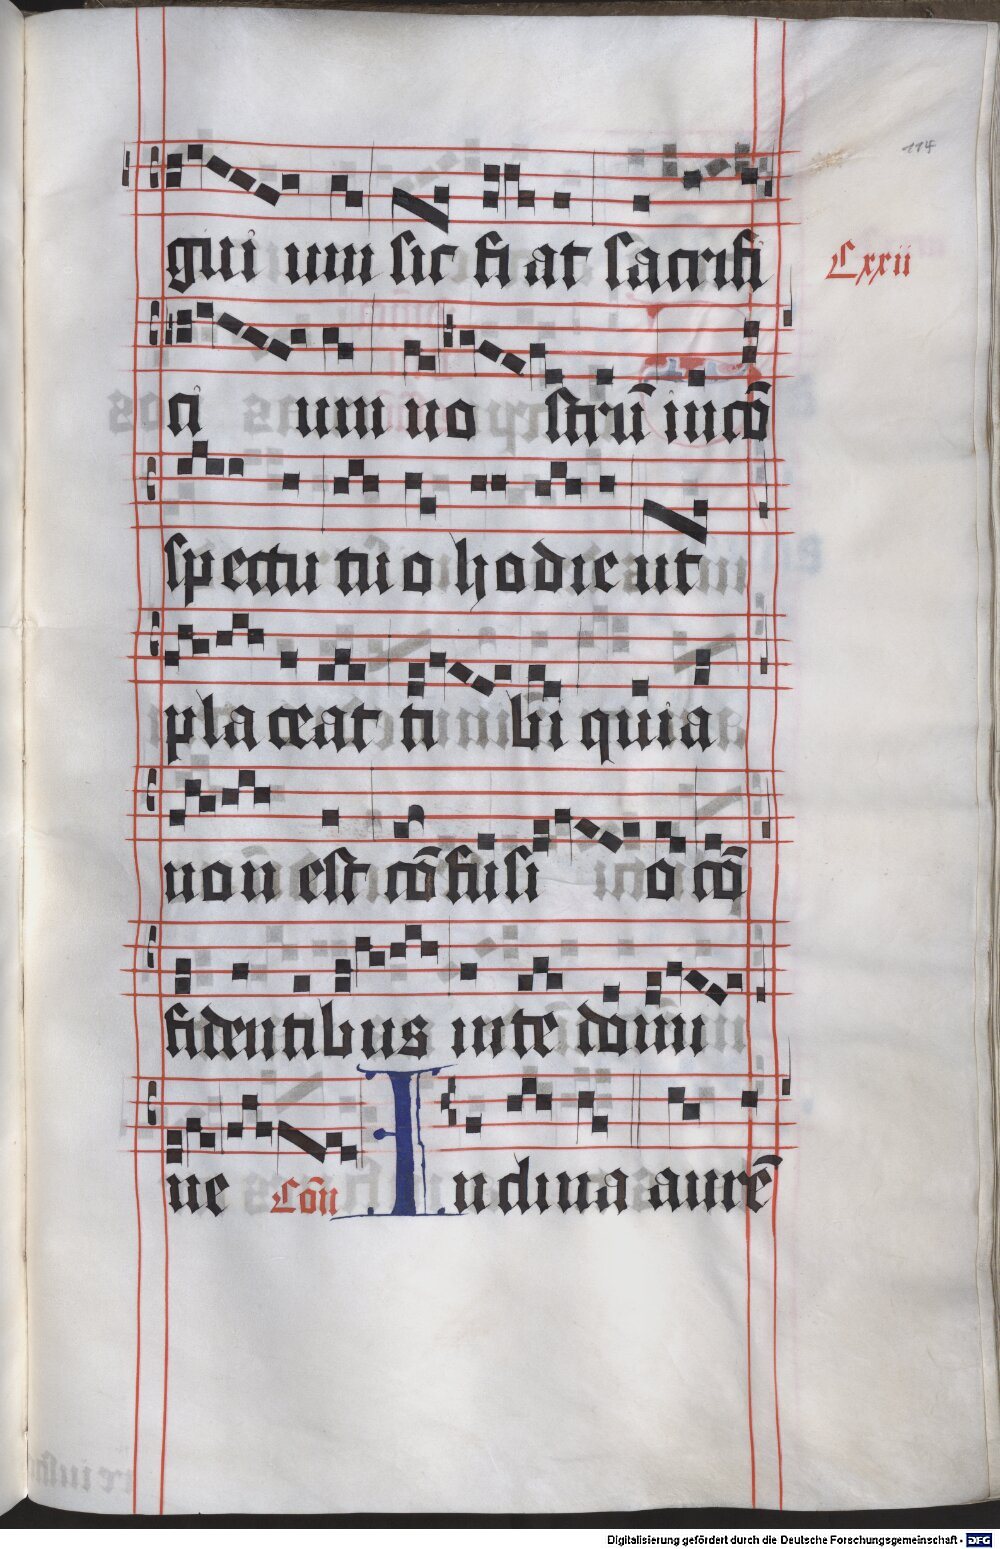 114
gui um sic fi at sacrifi
Cxxii
ci um no strū in cō
spectu tu o hodie ut
placeat ti bi quia
non est cōfusi o cō
fidentibus in te domi
ne Cōn Inclina aurē
Digitalisierung gefördert durch die Deutsche Forschungsgemeinschaft - DFG